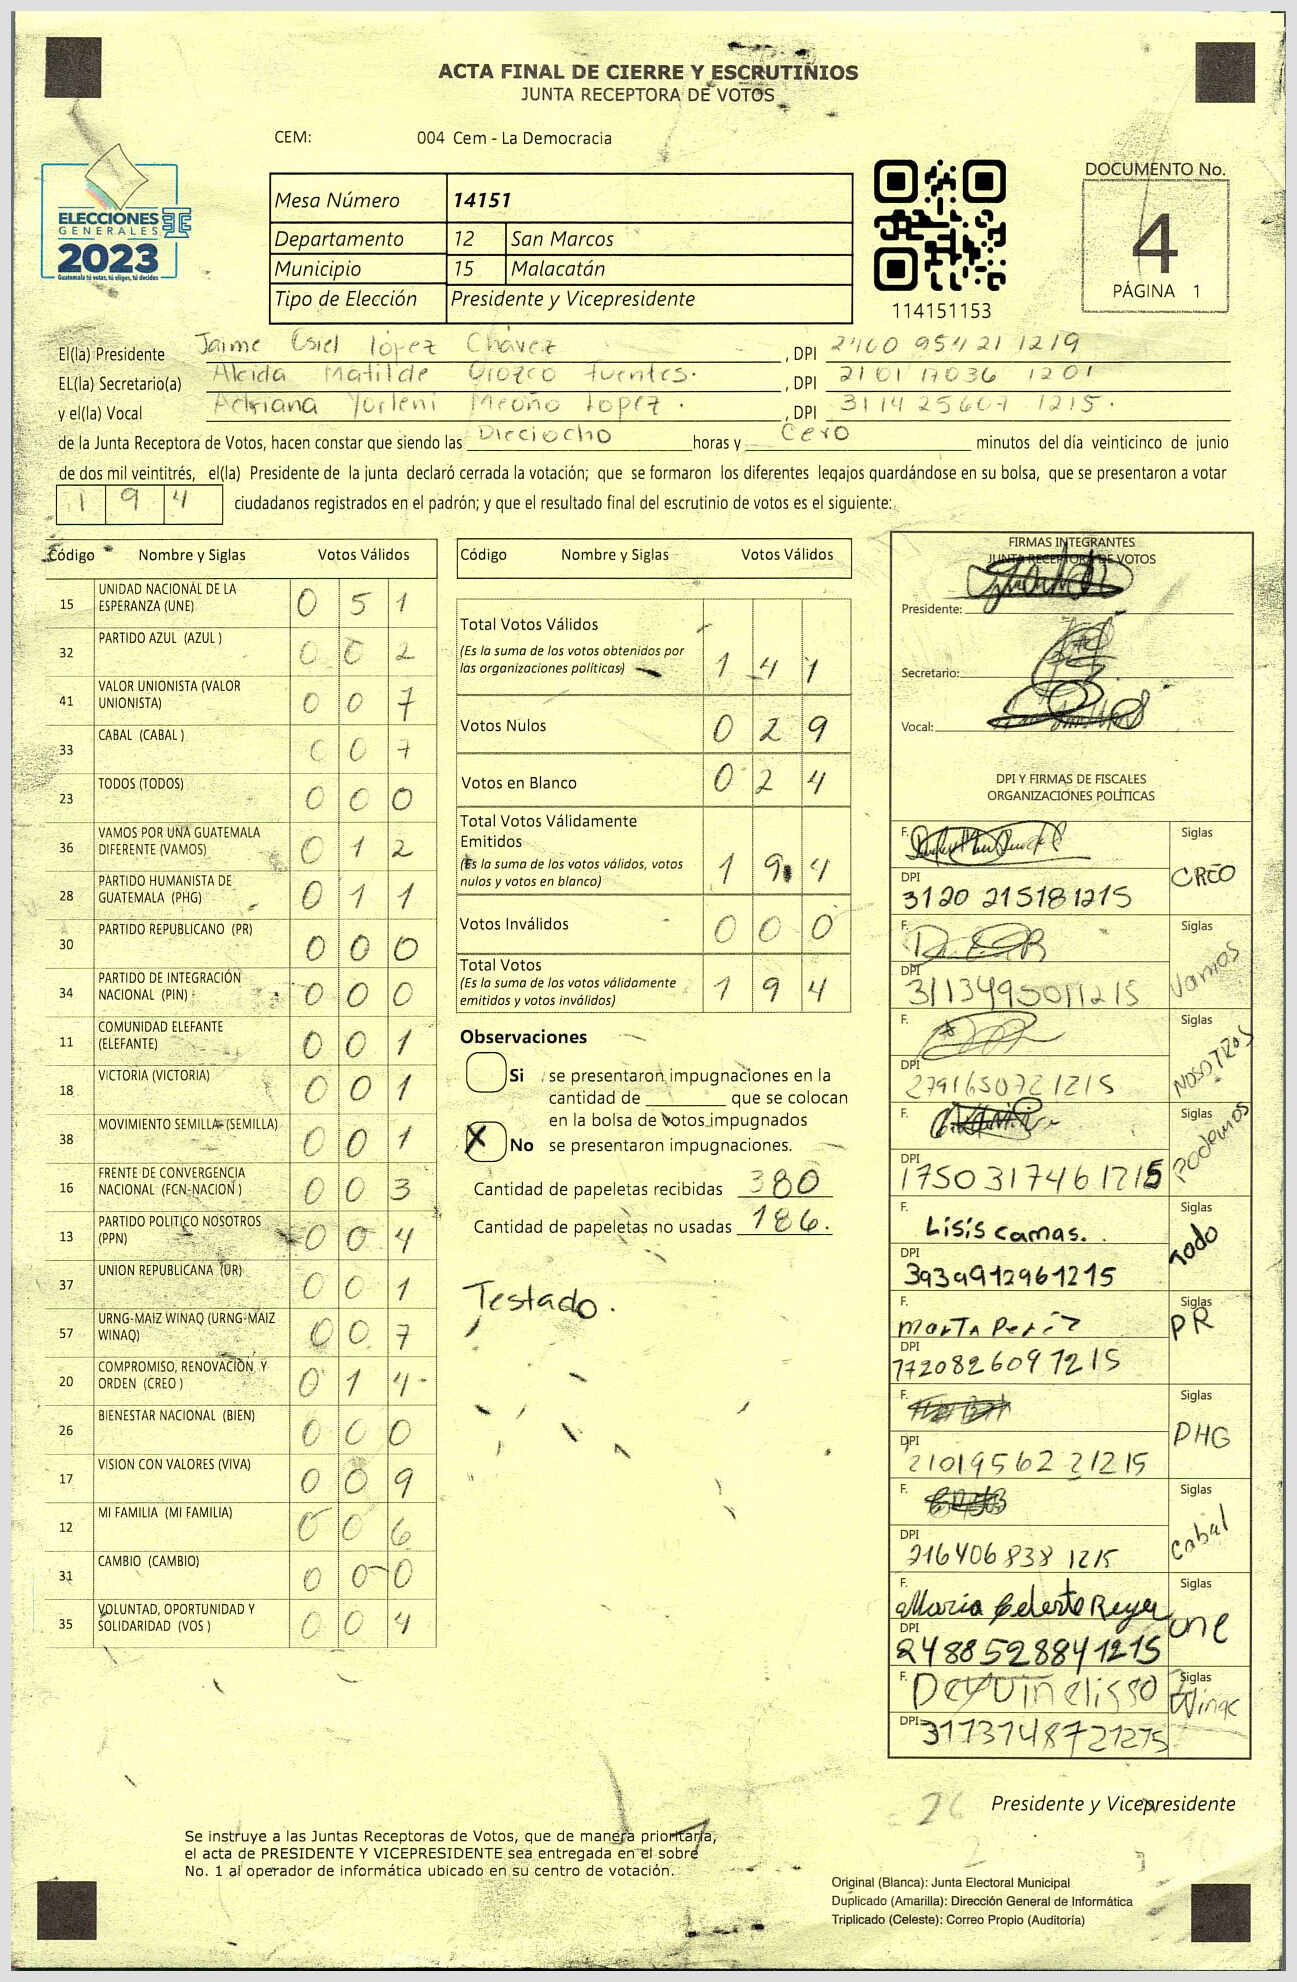 ACTA FINAL DE CIERRE Y ESCRUTINIOS
JUNTA RECEPTORA DE VOTOS
CEM: 004 Cem - La Democracia
ELECCIONES
GENERALES
2023
Guatemala tú votas, tú eliges, tú decides
Mesa Número 14151
Departamento 12 San Marcos
Municipio 15 Malacatán
Tipo de Elección Presidente y Vicepresidente
114151153
DOCUMENTO No.
4
PÁGINA 1
El(la) Presidente Jaime Esiel López Chávez, DPI 2460 95421 1219
EL(la) Secretario(a) Aleida Matilde Orozco Fuentes., DPI 2101 17036 1201
y el(la) Vocal Adriana Yorleni Meoño Lopez., DPI 3114 25607 1215.
de la Junta Receptora de Votos, hacen constar que siendo las Dieciocho horas y Cero minutos del día veinticinco de junio
de dos mil veintitrés, el(la) Presidente de la junta declaró cerrada la votación; que se formaron los diferentes legajos guardándose en su bolsa, que se presentaron a votar
194 ciudadanos registrados en el padrón; y que el resultado final del escrutinio de votos es el siguiente:
Código Nombre y Siglas Votos Válidos
15 UNIDAD NACIONAL DE LA ESPERANZA (UNE) 0 5 1
32 PARTIDO AZUL (AZUL ) 0 0 2
41 VALOR UNIONISTA (VALOR UNIONISTA) 0 0 7
33 CABAL (CABAL ) 0 0 7
23 TODOS (TODOS) 0 0 0
36 VAMOS POR UNA GUATEMALA DIFERENTE (VAMOS) 0 1 2
28 PARTIDO HUMANISTA DE GUATEMALA (PHG) 0 1 1
30 PARTIDO REPUBLICANO (PR) 0 0 0
34 PARTIDO DE INTEGRACIÓN NACIONAL (PIN) 0 0 0
11 COMUNIDAD ELEFANTE (ELEFANTE) 0 0 1
18 VICTORIA (VICTORIA) 0 0 1
38 MOVIMIENTO SEMILLA (SEMILLA) 0 0 1
16 FRENTE DE CONVERGENCIA NACIONAL (FCN-NACION ) 0 0 3
13 PARTIDO POLITICO NOSOTROS (PPN) 0 0 4
37 UNION REPUBLICANA (UR) 0 0 1
57 URNG-MAIZ WINAQ (URNG-MAIZ WINAQ) 0 0 7
20 COMPROMISO, RENOVACIÓN Y ORDEN (CREO ) 0 1 4
26 BIENESTAR NACIONAL (BIEN) 0 0 0
17 VISION CON VALORES (VIVA) 0 0 9
12 MI FAMILIA (MI FAMILIA) 0 0 6
31 CAMBIO (CAMBIO) 0 0 0
35 VOLUNTAD, OPORTUNIDAD Y SOLIDARIDAD (VOS ) 0 0 4
Código Nombre y Siglas Votos Válidos
Total Votos Válidos 1 4 1
(Es la suma de los votos obtenidos por
las organizaciones políticas)
Votos Nulos 0 2 9
Votos en Blanco 0 2 4
Total Votos Válidamente
Emitidos 1 9 4
(Es la suma de los votos válidos, votos
nulos y votos en blanco)
Votos Inválidos 0 0 0
Total Votos 1 9 4
(Es la suma de los votos válidamente
emitidos y votos inválidos)
Observaciones
Si se presentaron impugnaciones en la
cantidad de ________ que se colocan
en la bolsa de votos impugnados
X No se presentaron impugnaciones.
Cantidad de papeletas recibidas 380
Cantidad de papeletas no usadas 186.
Testado.
FIRMAS INTEGRANTES
JUNTA RECEPTORA DE VOTOS
Presidente:
Secretario:
Vocal:
DPI Y FIRMAS DE FISCALES
ORGANIZACIONES POLÍTICAS
F. Siglas CREO
DPI 3120 215181215
F. Siglas Vamos
DPI 3113495011215
F. Siglas NOSOTROS
DPI 2791650721215
F. Siglas Podemos
DPI 1750317461215
F. Lisis Camas. Siglas Todo
DPI 3939912961215
F. Marta Perez Siglas PR
DPI 1720826091215
F. Siglas PHG
DPI 2101956221215
F. Siglas Cabal
DPI 216406838 1215
F. Maria Celeste Reyes Siglas UNE
DPI 2488528841215
F. Siglas Winac
DPI 3173148721275
26
Presidente y Vicepresidente
Se instruye a las Juntas Receptoras de Votos, que de manera prioritaria,
el acta de PRESIDENTE Y VICEPRESIDENTE sea entregada en el sobre
No. 1 al operador de informática ubicado en su centro de votación.
Original (Blanca): Junta Electoral Municipal
Duplicado (Amarilla): Dirección General de Informática
Triplicado (Celeste): Correo Propio (Auditoría)